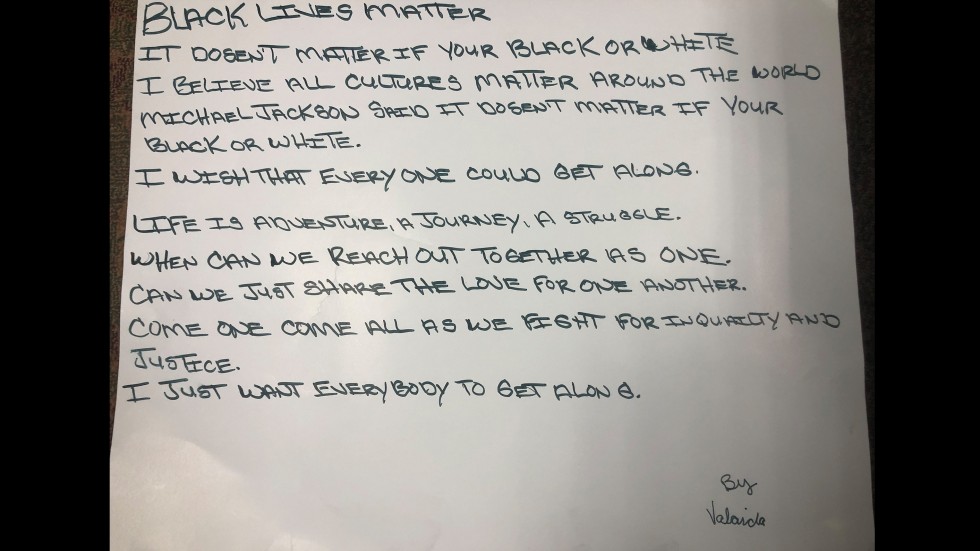 BLACK LIVES MATTER
IT DOSENT MATTER IF YOUR BLACK OR WHITE
I BELIEVE ALL CULTURES MATTER AROUND THE WORLD
MICHAEL JACKSON SAID IT DOSENT MATTER IF YOUR
BLACK OR WHITE.
I WISH THAT EVERY ONE COULD GET ALONG.
LIFE IS ADVENTURE, A JOURNEY, A STRUGGLE.
WHEN CAN WE REACH OUT TOGETHER AS ONE.
CAN WE JUST SHARE THE LOVE FOR ONE ANOTHER.
COME ONE COME ALL AS WE FIGHT FOR INQUAILTY AND
JUSTICE.
I JUST WANT EVERYBODY TO GET ALONG.
By
Valaida